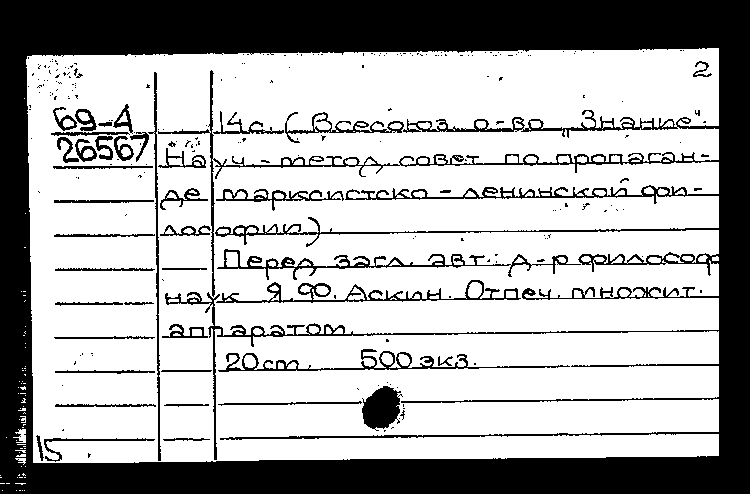 2
69-4 14с. (Всесоюз. о-во „Знание".
26567 Науч.-метод. совет по пропаган-
де марксистско-ленинской фи-
лософии).
Перед загл. авт.: д-р философ
наук Я.Ф. Аскин. Отпеч. множит.
аппаратом.
20 ст. 500 экз.
15